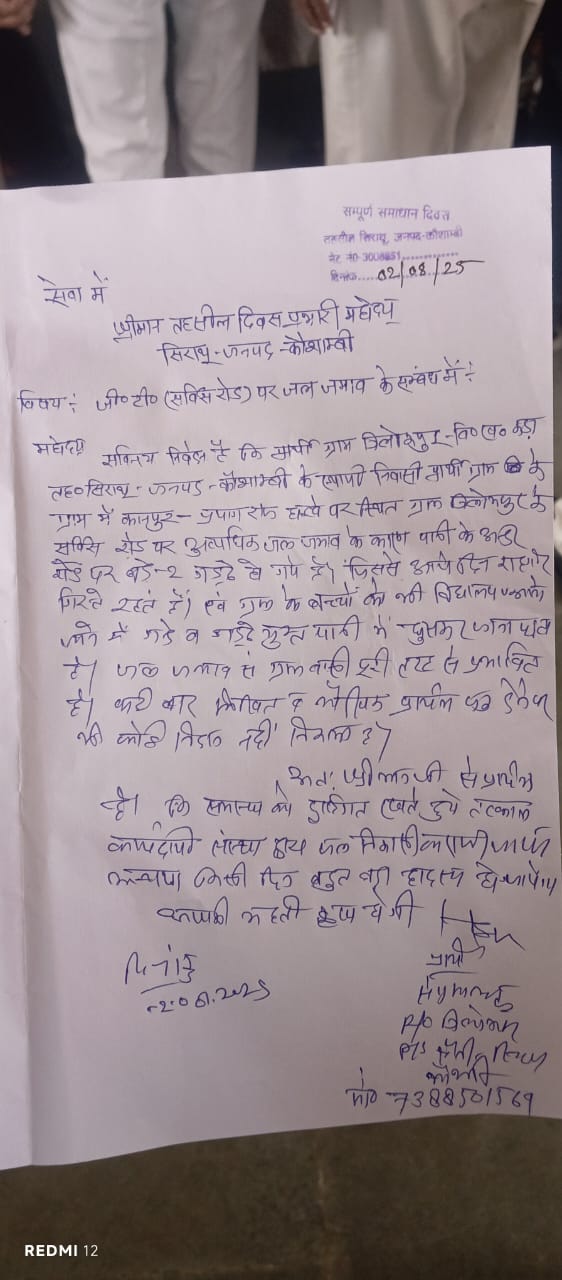 सम्पूर्ण समाधान दिवस
तहसील सिराथू, जनपद-कौशाम्बी
3008851
दिनांक.....02/08/25
सेवा में
श्रीमान तहसील दिवस प्रभारी महोदय
सिराथू-जनपद-कौशाम्बी
विषय: जी०टी० (सर्विस रोड) पर जल जमाव के सम्बंध में:
महोदय
सविनय निवेदन है कि प्रार्थी ग्राम वि०ख० कड़ा
तह० सिराथू-जनपद-कौशाम्बी के स्थायी निवासी प्रार्थी ग्राम के
ग्राम में कानपुर-प्रयागराज हाइवे पर स्थित ग्राम के
सर्विस रोड पर अत्याधिक जल जमाव के कारण पानी के अन्दर
रोड पर बड़े-2 गड्ढे हो गये है। जिससे आये दिन राहगीर
गिरते रहते है। एवं ग्राम के बच्चों को भी विद्यालय
जाने में गंदे व गड्ढे युक्त पानी में घुसकर जाना पड़ता
है। जल जमाव से ग्राम वासी पूरी तरह से प्रभावित
है। कई बार लिखित व मौखिक प्रार्थना पत्र देने पर
भी कोई निदान नहीं निकला है।
अतः श्रीमान जी से प्रार्थना
है। कि समस्या को दृष्टिगत रखते हुये तत्काल
कार्यदायी संस्था द्वारा जल निकासी करायी जाये
अन्यथा किसी दिन बहुत बड़ा हादसा हो जायेगा
आपकी महती कृपा होगी
दिनांक
प्रार्थी
R/O
कौशाम्बी
मो० 7388501569
REDMI 12